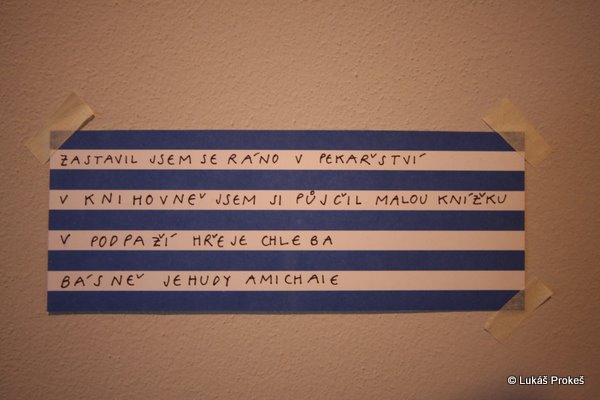 ZASTAVIL JSEM SE RÁNO V PEKAŘSTVÍ
V KNIHOVNĚ JSEM SI PŮJČIL MALOU KNÍŽKU
V PODPAŽÍ HŘEJE CHLEBA
BÁSNĚ JEHUDY AMICHAIE
© Lukáš Prokeš